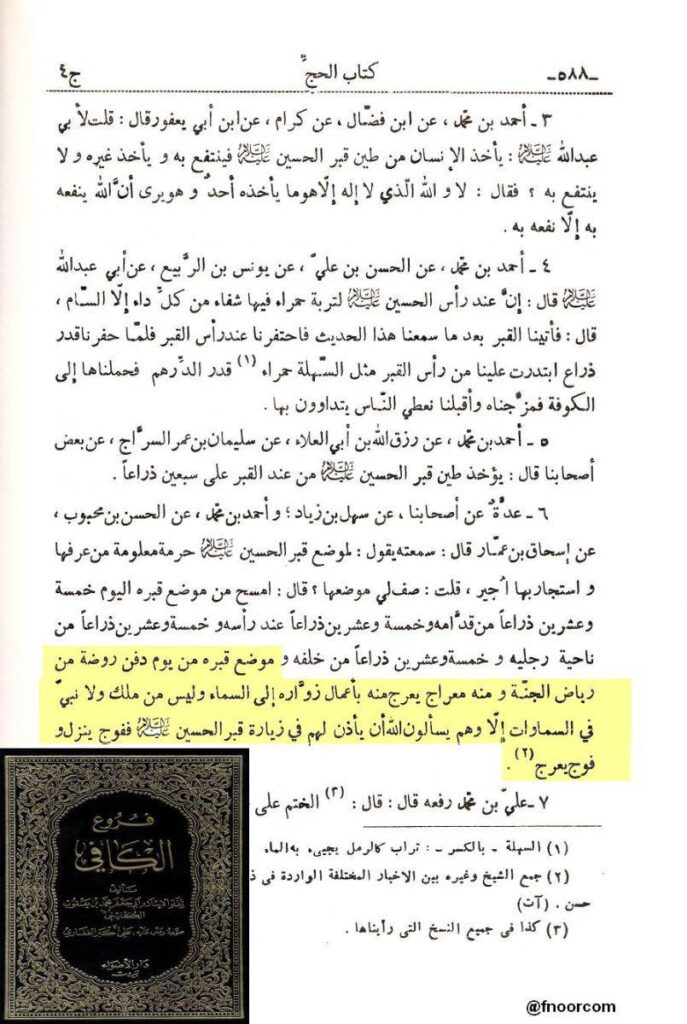 ـ ٥٨٨ ـ
كتاب الحجّ
ج٤
٣ ـ أحمد بن محمّد ، عن ابن فضّال ، عن كرام ، عن ابن أبي يعفور قال : قلت لأبي
عبدالله عليه السلام : يأخذ الإنسان من طين قبر الحسين عليه السلام فينتفع به و يأخذ غيره و لا
ينتفع به ؟ فقال : لا و الله الّذي لا إله إلّا هو ما يأخذه أحدٌ و هو يرى أنَّ الله ينفعه
به إلّا نفعه به .
٤ ـ أحمد بن محمّد ، عن الحسن بن عليّ ، عن يونس بن الرَّبيع ، عن أبي عبدالله
عليه السلام قال : إنَّ عند رأس الحسين عليه السلام لتربة حمراء فيها شفاء من كلِّ داء إلّا السّام ،
قال : فأتينا القبر بعد ما سمعنا هذا الحديث فاحتفرنا عند رأس القبر فلمّا حفرنا قدر
ذراع ابتدرت علينا من رأس القبر مثل السّهلة حمراء (١) قدر الدِّرهم فحملناها إلى
الكوفة فمزَّجناه وأقبلنا نعطي النّاس يتداوون بها .
٥ ـ أحمد بن محمّد ، عن رزق الله بن أبي العلاء ، عن سليمان بن عمر السرَّاج ، عن بعض
أصحابنا قال : يؤخذ طين قبر الحسين عليه السلام من عند القبر على سبعين ذراعاً .
٦ ـ عدَّةٌ عن أصحابنا ، عن سهل بن زياد ؛ و أحمد بن محمّد ، عن الحسن بن محبوب ،
عن إسحاق بن عمّار قال : سمعته يقول : لموضع قبر الحسين عليه السلام حرمة معلومة من عرفها
و استجار بها اُجير ، قلت : صف لي موضعها ؟ قال : امسح من موضع قبره اليوم خمسة
وعشرين ذراعاً من قدَّامه وخمسة وعشرين ذراعاً عند رأسه و خمسة وعشرين ذراعاً من
ناحية رجليه و خمسة وعشرين ذراعاً من خلفه و موضع قبره من يوم دفن روضة من
رياض الجنّة و منه معراج يعرج منه بأعمال زوَّاره إلى السماء وليس من ملك ولا نبيّ
في السماوات إلّا وهم يسألون الله أن يأذن لهم في زيارة قبر الحسين عليه السلام ففوج ينزل و
فوج يعرج (٢) .
٧ ـ عليّ بن محمّد رفعه قال : قال : (٣) الختم على
(١) السهلة ـ بالكسر ـ : تراب كالرمل يجيىء به الماء
(٢) جمع الشيخ وغيره بين الاخبار المختلفة الواردة فى ذ
حسن . (آت)
(٣) كذا فى جميع النسخ التى رأيناها .
فروع
الكافي
تأليف
الكليني
دار الأضواء
بيروت
@fnoorcom